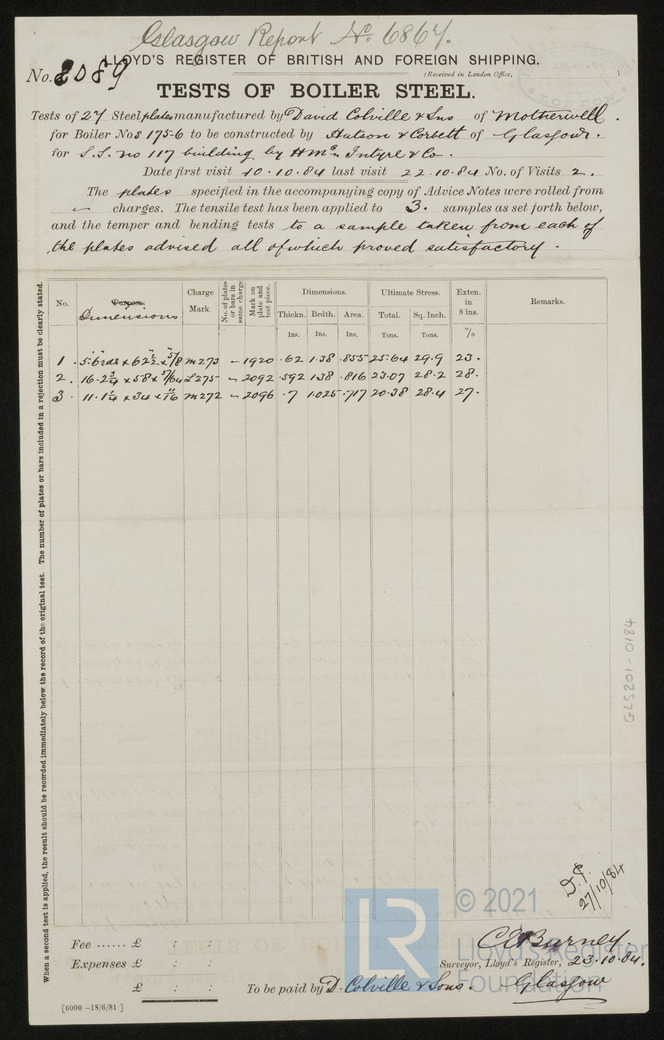 Glasgow Report No. 6867.
LLOYD'S REGISTER OF BRITISH AND FOREIGN SHIPPING.
No. 2089
(Received in London Office, )
TESTS OF BOILER STEEL.
Tests of 27 Steel plates manufactured by David Colville & Sns of Motherwell.
for Boiler Nos 175-6 to be constructed by Hutson & Corbett of Glasgow.
for S.S. no 117 building by H McIntyre & Co.
Date first visit 10.10.84 last visit 22.10.84 No. of Visits 2.
The plates specified in the accompanying copy of Advice Notes were rolled from
charges. The tensile test has been applied to 3. samples as set forth below,
and the temper and bending tests to a sample taken from each of
the plates advised all of which proved satisfactory.
No. Purpose. Dimensions Charge Mark No. of plates or bars in same charge Mark on plate and test piece. Dimensions. Ultimate Stress. Exten. in 8 ins. Remarks.
Thickn. Brdth. Area. Total. Sq. Inch.
Ins. Ins. Ins. Tons. Tons. %
1. 5.6 rds x 62½ x 5/8 M273 - 1920 .62 1.38 .855 25.64 29.9 23.
2. 16.2¾ x 58 x 37/64 L275 - 2092 .592 1.38 .816 23.07 28.2 28.
3. 11.1¼ x 34 x 11/16 M272 - 2096 .7 1.025 .717 20.38 28.4 27.
When a second test is applied, the result should be recorded immediately below the record of the original test. The number of plates or bars included in a rejection must be clearly stated.
GLS201-0184
27/10/84
© 2021
LR
Lloyd's Register
Foundation
Fee ...... £ : :
Expenses £ : :
£ : :
C E Burney
Surveyor, Lloyd's Register, 23.10.84.
To be paid by D. Colville & Sons. Glasgow
[6000 —18/6/81]